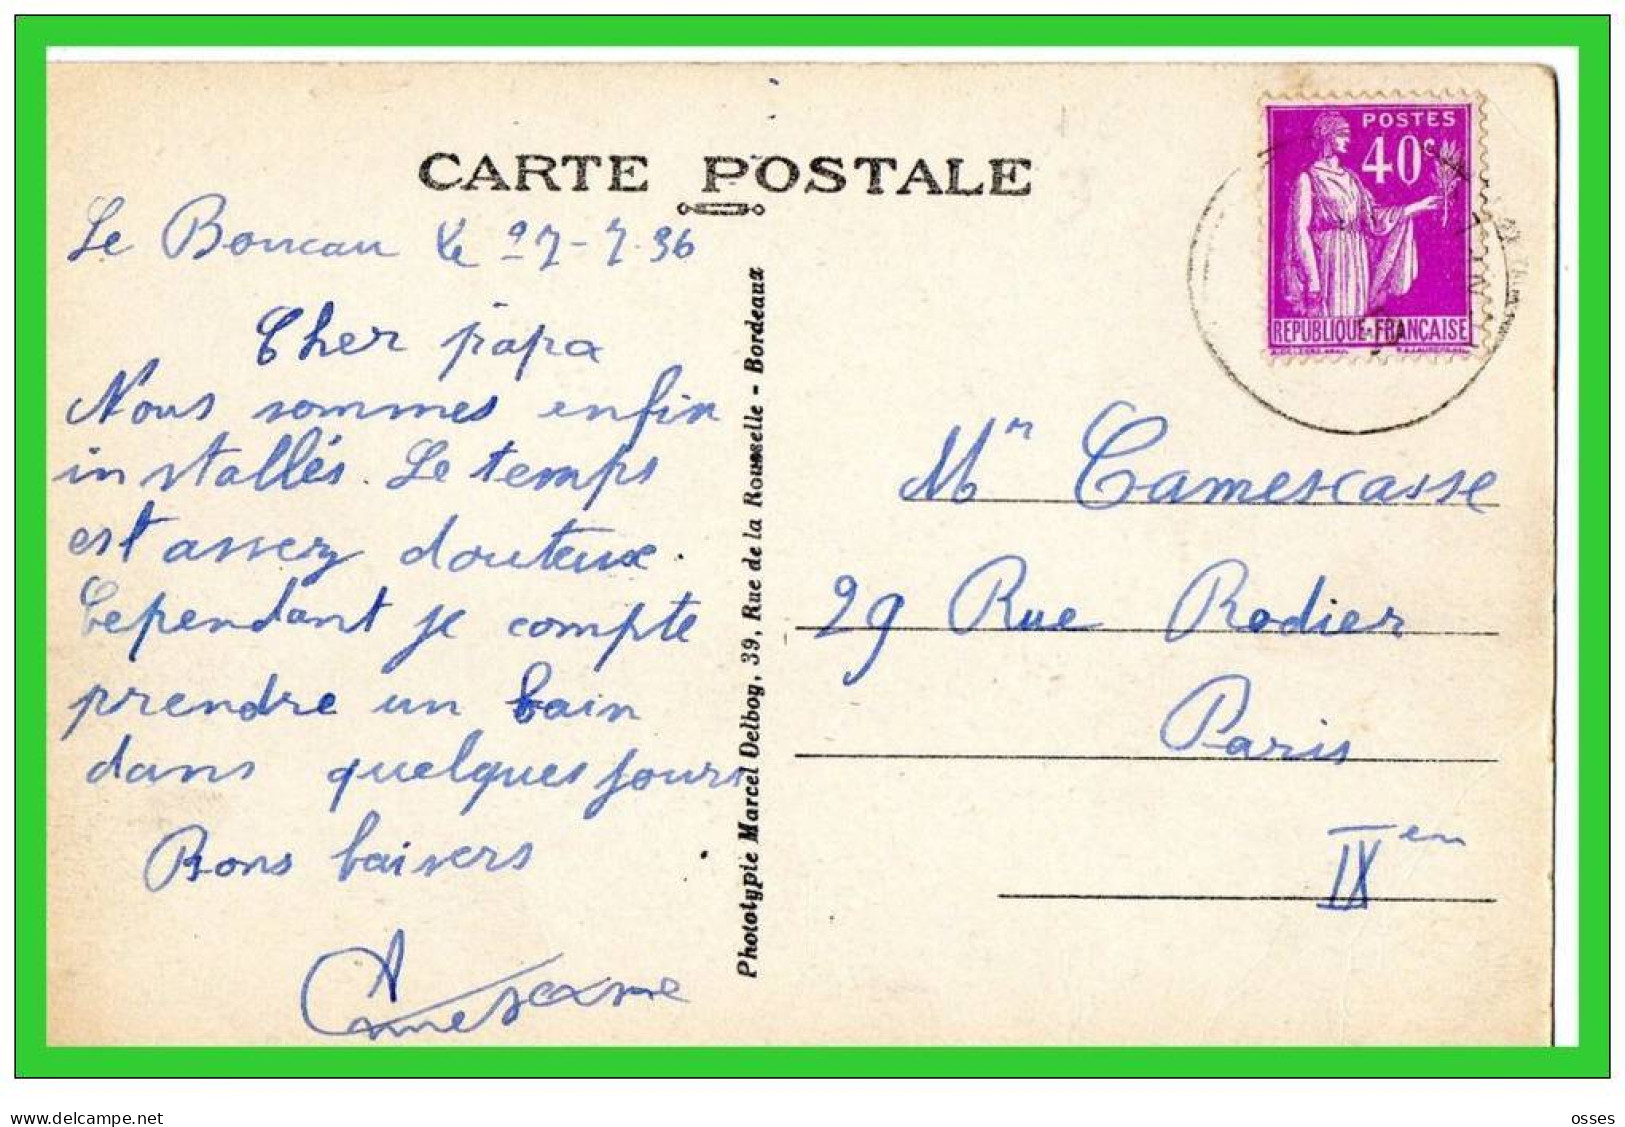 CARTE POSTALE
Le Boucau le 27-7-36
Cher papa
Nous sommes enfin
installés. Le temps
est assez douteux.
Cependant je compte
prendre un bain
dans quelques jours
Bons baisers
Camescasse
Phototypie Marcel Delboy, 39, Rue de la Rousselle - Bordeaux
POSTES
40c
REPUBLIQUE-FRANÇAISE
Mr Camescasse
29 Rue Rodier
Paris
IX em
www.delcampe.net
osses